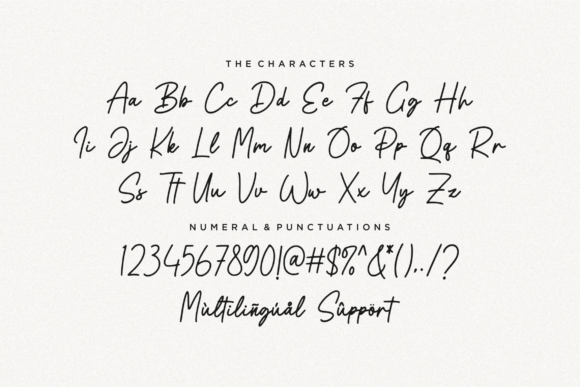 THE CHARACTERS
Aa Bb Cc Dd Ee Ff Gg Hh
Ii Jj Kk Ll Mm Nn Oo Pp Qq Rr
Ss Tt Uu Vv Ww Xx Yy Zz
NUMERAL & PUNCTUATIONS
1234567890!@#$%^&*()../?
Mùltilingúål Sûppört